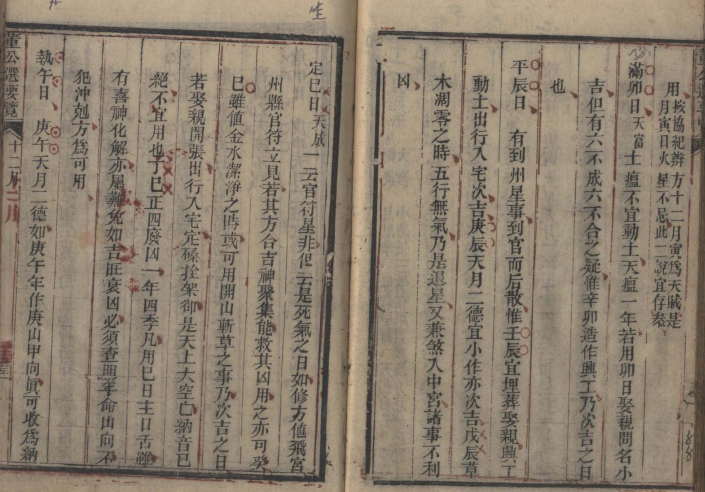 用按協紀辨方十二月寅為天賊是
月寅日火星不忌此二說宜存參
滿卯日天富土瘟不宜動土天瘟一年若用卯日娶親問名小
吉但有六不成六不合之疑惟辛卯造作興工乃次吉之日
也
平辰日　有到州星事到官而后散惟壬辰宜埋葬娶親興工
動土出行入宅次吉庚辰天月二德宜小作亦次吉戊辰草
木凋零之時五行無氣乃是退星又兼煞入中宮諸事不利
凶
定巳日天成一云官符星非但云是死氣之日如修方值飛宮
州縣官符立見若其方合吉神聚集能救其凶用之亦可癸
巳雖值金水潔淨之時或可用開山斬草之事乃次吉之日
若娶親開張出行入宅定磉拴架卻是天上大空亡納音巳
絕不宜用也丁巳正四廢凶一年四季凡用巳日主口舌雖
有喜神化解亦屬難免如吉旺衰凶必須查照年命山向不
犯沖剋方為可用
執午日　庚午天月二德如庚午年作庚山甲向眞可收為納
董公選要覽
十二月